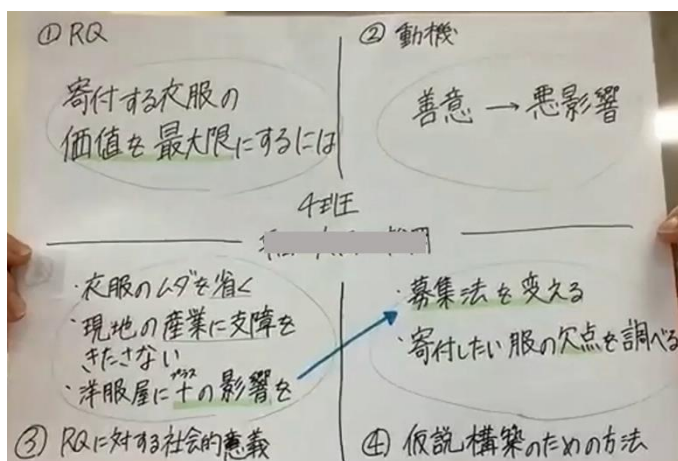 ① RQ
寄付する衣服の
価値を最大限にするには
② 動機
善意 → 悪影響
4班
・衣服のムダを省く
・現地の産業に支障を
きたさない
プラス
・洋服屋に+の影響を
③ RQに対する社会的意義
・募集法を変える
・寄付したい服の欠点を調べる
④ 仮説構築のための方法